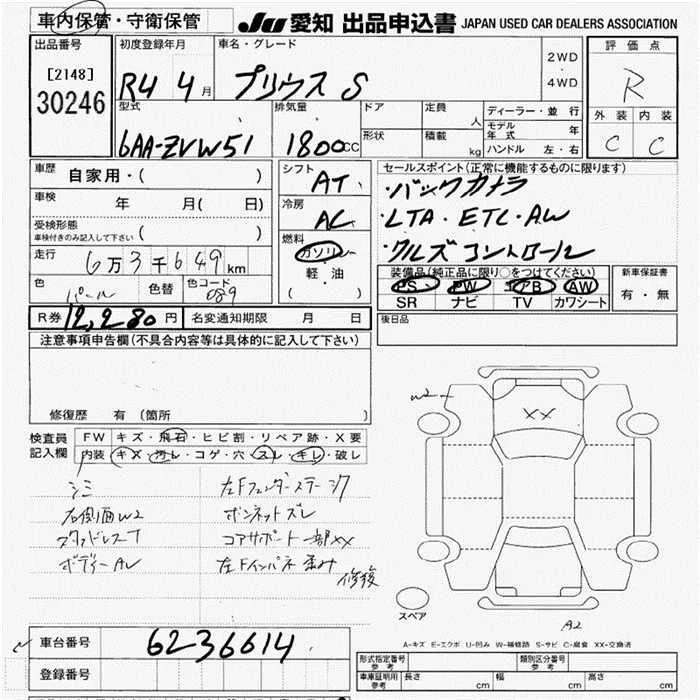 車内保管・守衛保管 JU 愛知 出品申込書 JAPAN USED CAR DEALERS ASSOCIATION
出品番号 [2148] 30246
初度登録年月 R4 4月
車名・グレード プリウス S
2WD・4WD
評価点 R
外装 C 内装 C
型式 6AA-ZVW51
排気量 1800cc
ドア 形状
定員 人 積載 kg
ディーラー・並行
モデル年式 年
ハンドル 左・右
車歴 自家用・( )
車検 年 月( 日)
受検形態 車検付きのみ記入して下さい ( )
走行 6万3千649km
色 パール 色替 色コード 089
シフト AT
冷房 AC
燃料 ガソリン 軽・油 ( )
セールスポイント(正常に機能するものに限ります)
・バックカメラ
・LTA・ETC・AW
・クルーズコントロール
装備品(純正品に限り○をつけてください)
PS PW エアB AW
SR ナビ TV カワシート
新車保証書 有・無
R券 12,280円 名変通知期限 月 日
後日品
注意事項申告欄(不具合内容等は具体的に記入して下さい)
修復歴 有 (箇所
検査員記入欄
FW キズ・飛石・ヒビ割・リペア跡・X要
内装 キズ・汚レ・コゲ・穴・スレ・キレ・破レ
シミ
右側面W2
スタッドレスT
ボディーAV
左Fフェンダーステージク
ボンネットズレ
コアサポート一部XX
左Fインパネ歪み
修復
W2
XX
スペア
A2
A-キズ E-エクボ U-凹み W-補修跡 S-サビ C-腐食 XX-交換済
車台番号 6236614
登録番号
形式指定番号 参考
類別区分番号 参考
車庫証明用 参考 長さ cm 幅 cm 高さ cm